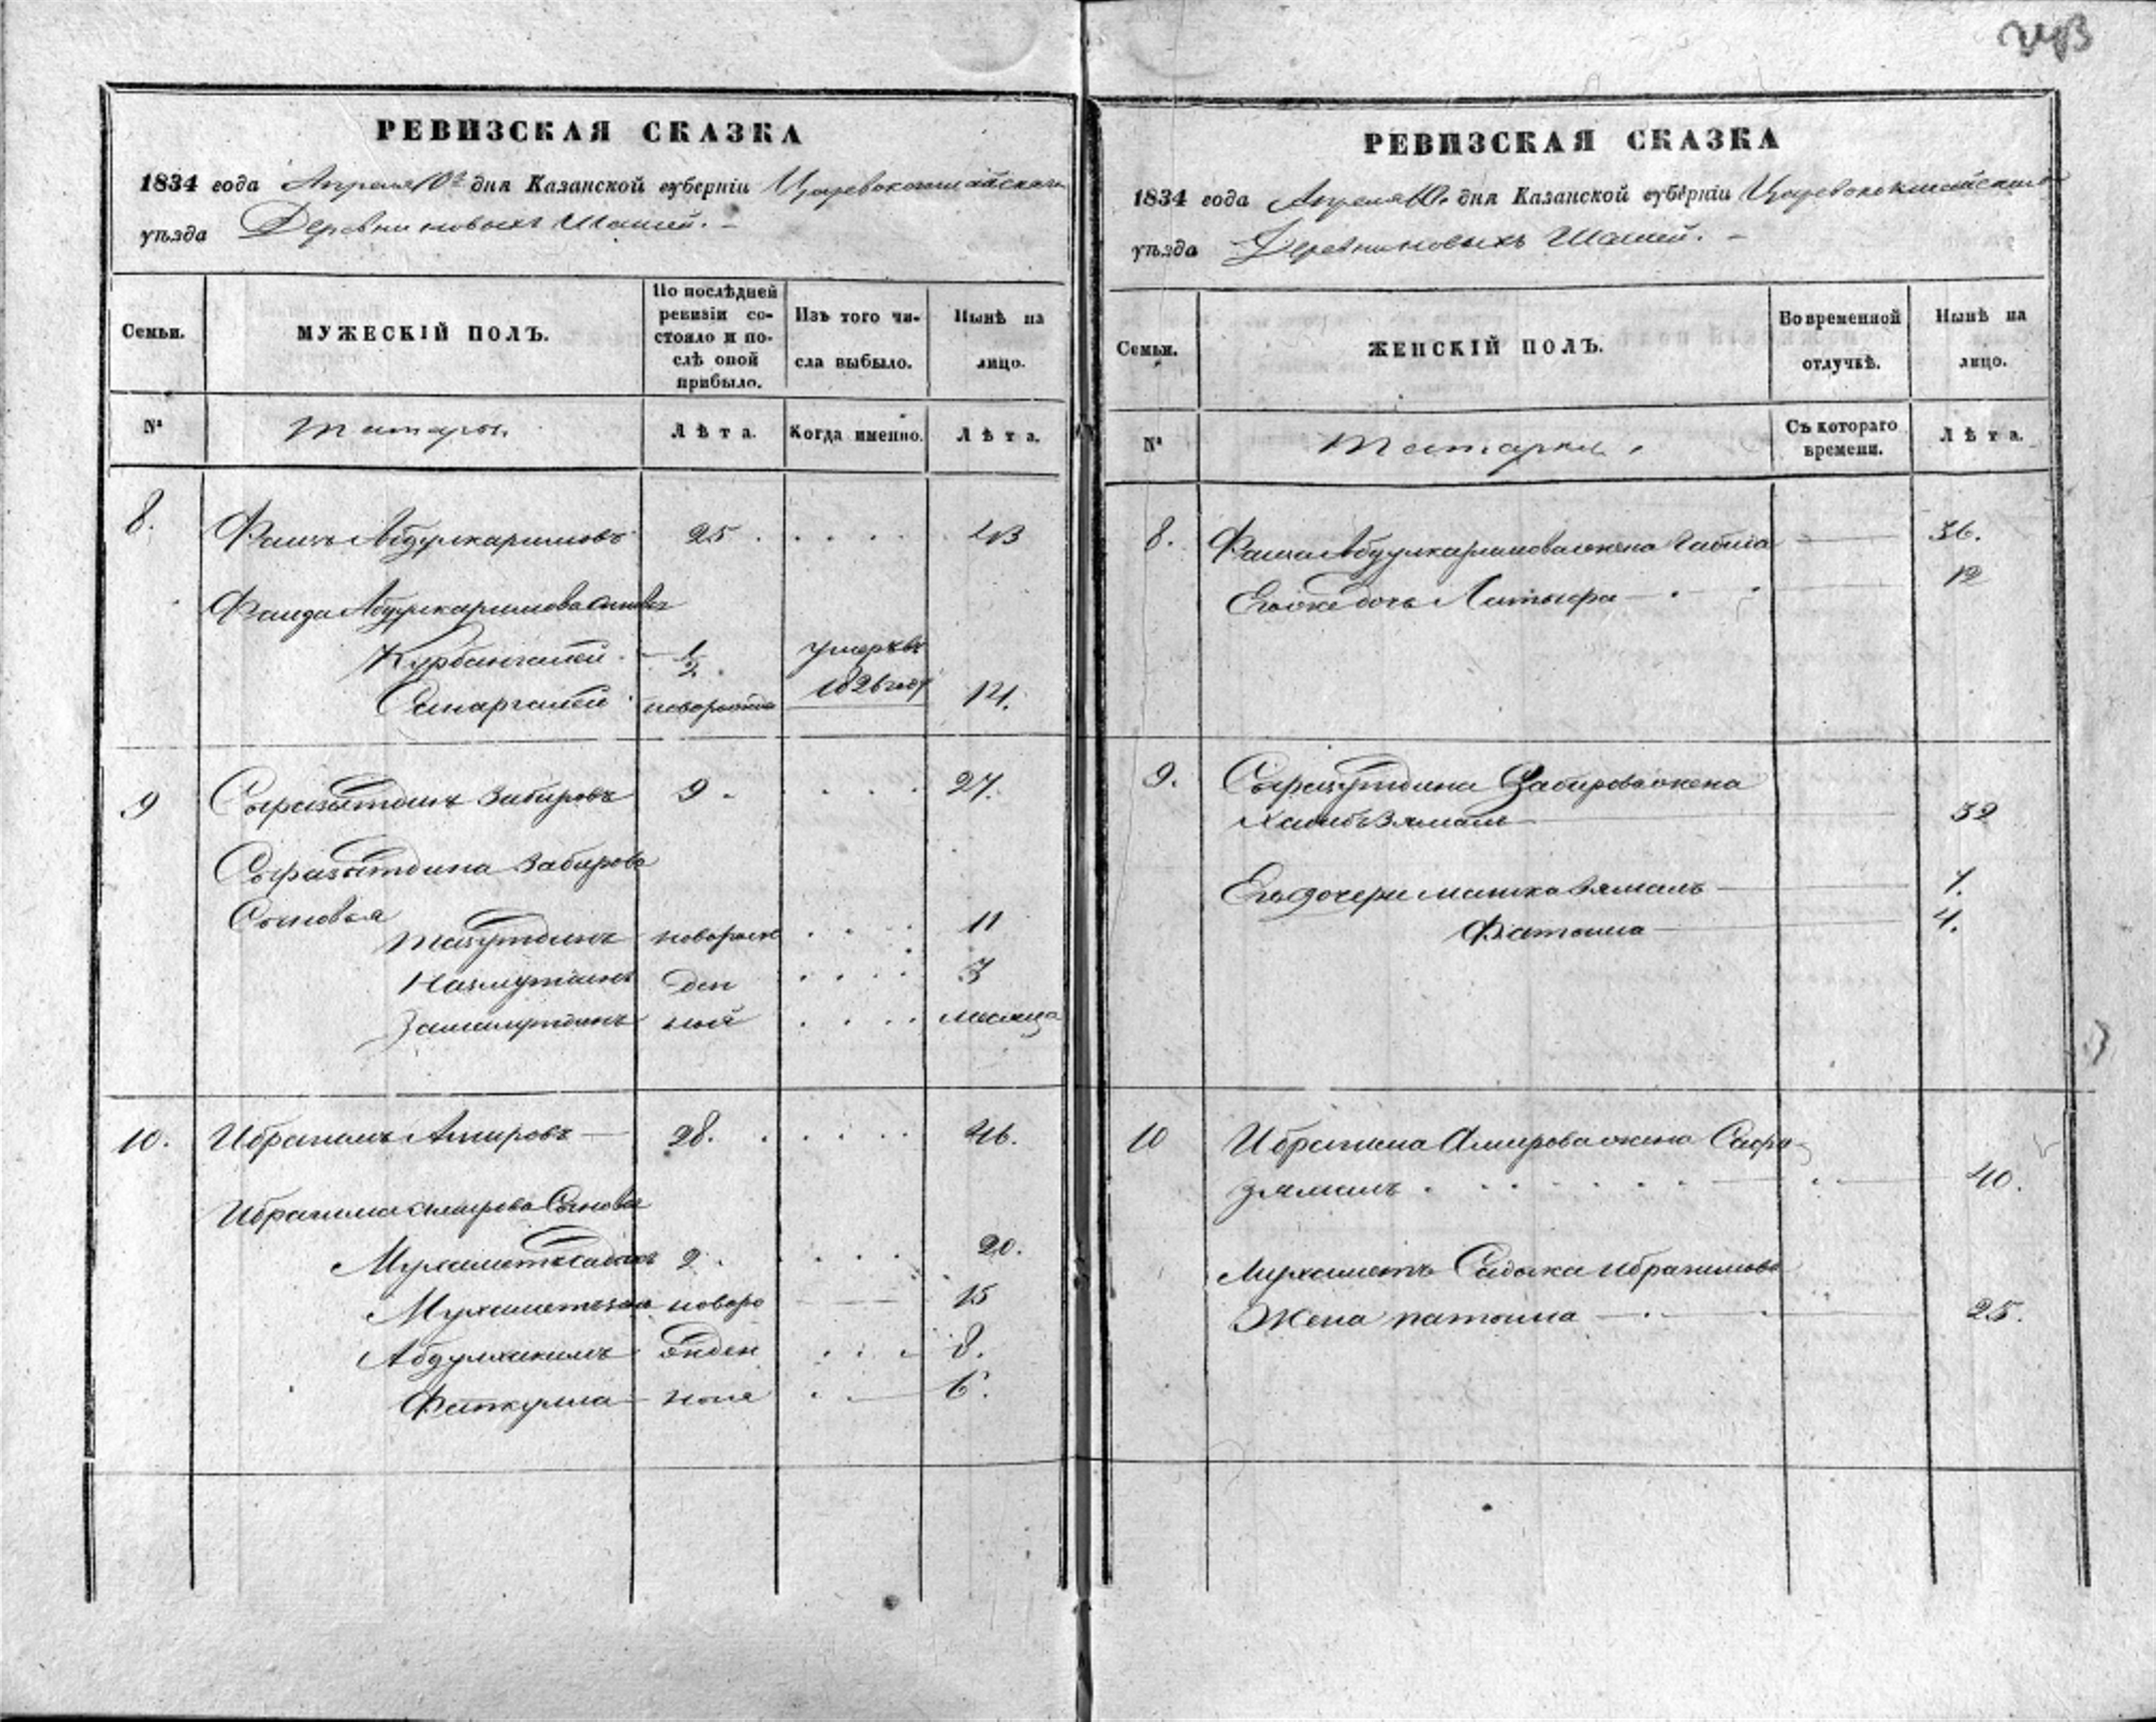 243
РЕВИЗСКАЯ СКАЗКА
1834 года Апреля 10го дня Казанской губерніи Царевококшайскаго
уѣзда Деревни новыхъ Шашей.
Семьи.
МУЖЕСКІЙ ПОЛЪ.
По послѣдней ревизіи со-
стояло и по-
слѣ оной
прибыло.
Изъ того чи-
сла выбыло.
Нынѣ на
лицо.
№
Татары.
Лѣта.
Когда именно.
Лѣта.
8. Абдулкаримовъ 25 43
Абдулкаримова сыновья
Курбангалей ½ умеръ въ
1826 году
новорожде 14.
9 Забировъ 9 27.
Забирова
Сыновья
Тазутдинъ новорож 11
Назмутдинъ ден 3
Замалутдинъ ной месяца
10. Ибрагимъ Амировъ 28. 46.
Ибрагима Амирова Сыновья
Мухаметьсадыкъ 2 20.
новоро 15
Абдулхакимъ жден 8.
Фаткулла ные 6.
РЕВИЗСКАЯ СКАЗКА
1834 года Апреля 10. дня Казанской губерніи Царевококшайскаго
уѣзда Деревни новыхъ Шашей.
Семьи.
ЖЕНСКІЙ ПОЛЪ.
Во временной
отлучкѣ.
Нынѣ на
лицо.
№
Татарки.
Съ котораго
времени.
Лѣта.
8. Абдулкаримова жена 36.
Егоже дочь 12
9. Забирова жена
32
Его дочери 7.
Фатыма 4.
10 Ибрагима Амирова жена Сафи-
зямалъ 40.
Мухаметь Садыка Ибрагимова
Жена 25.